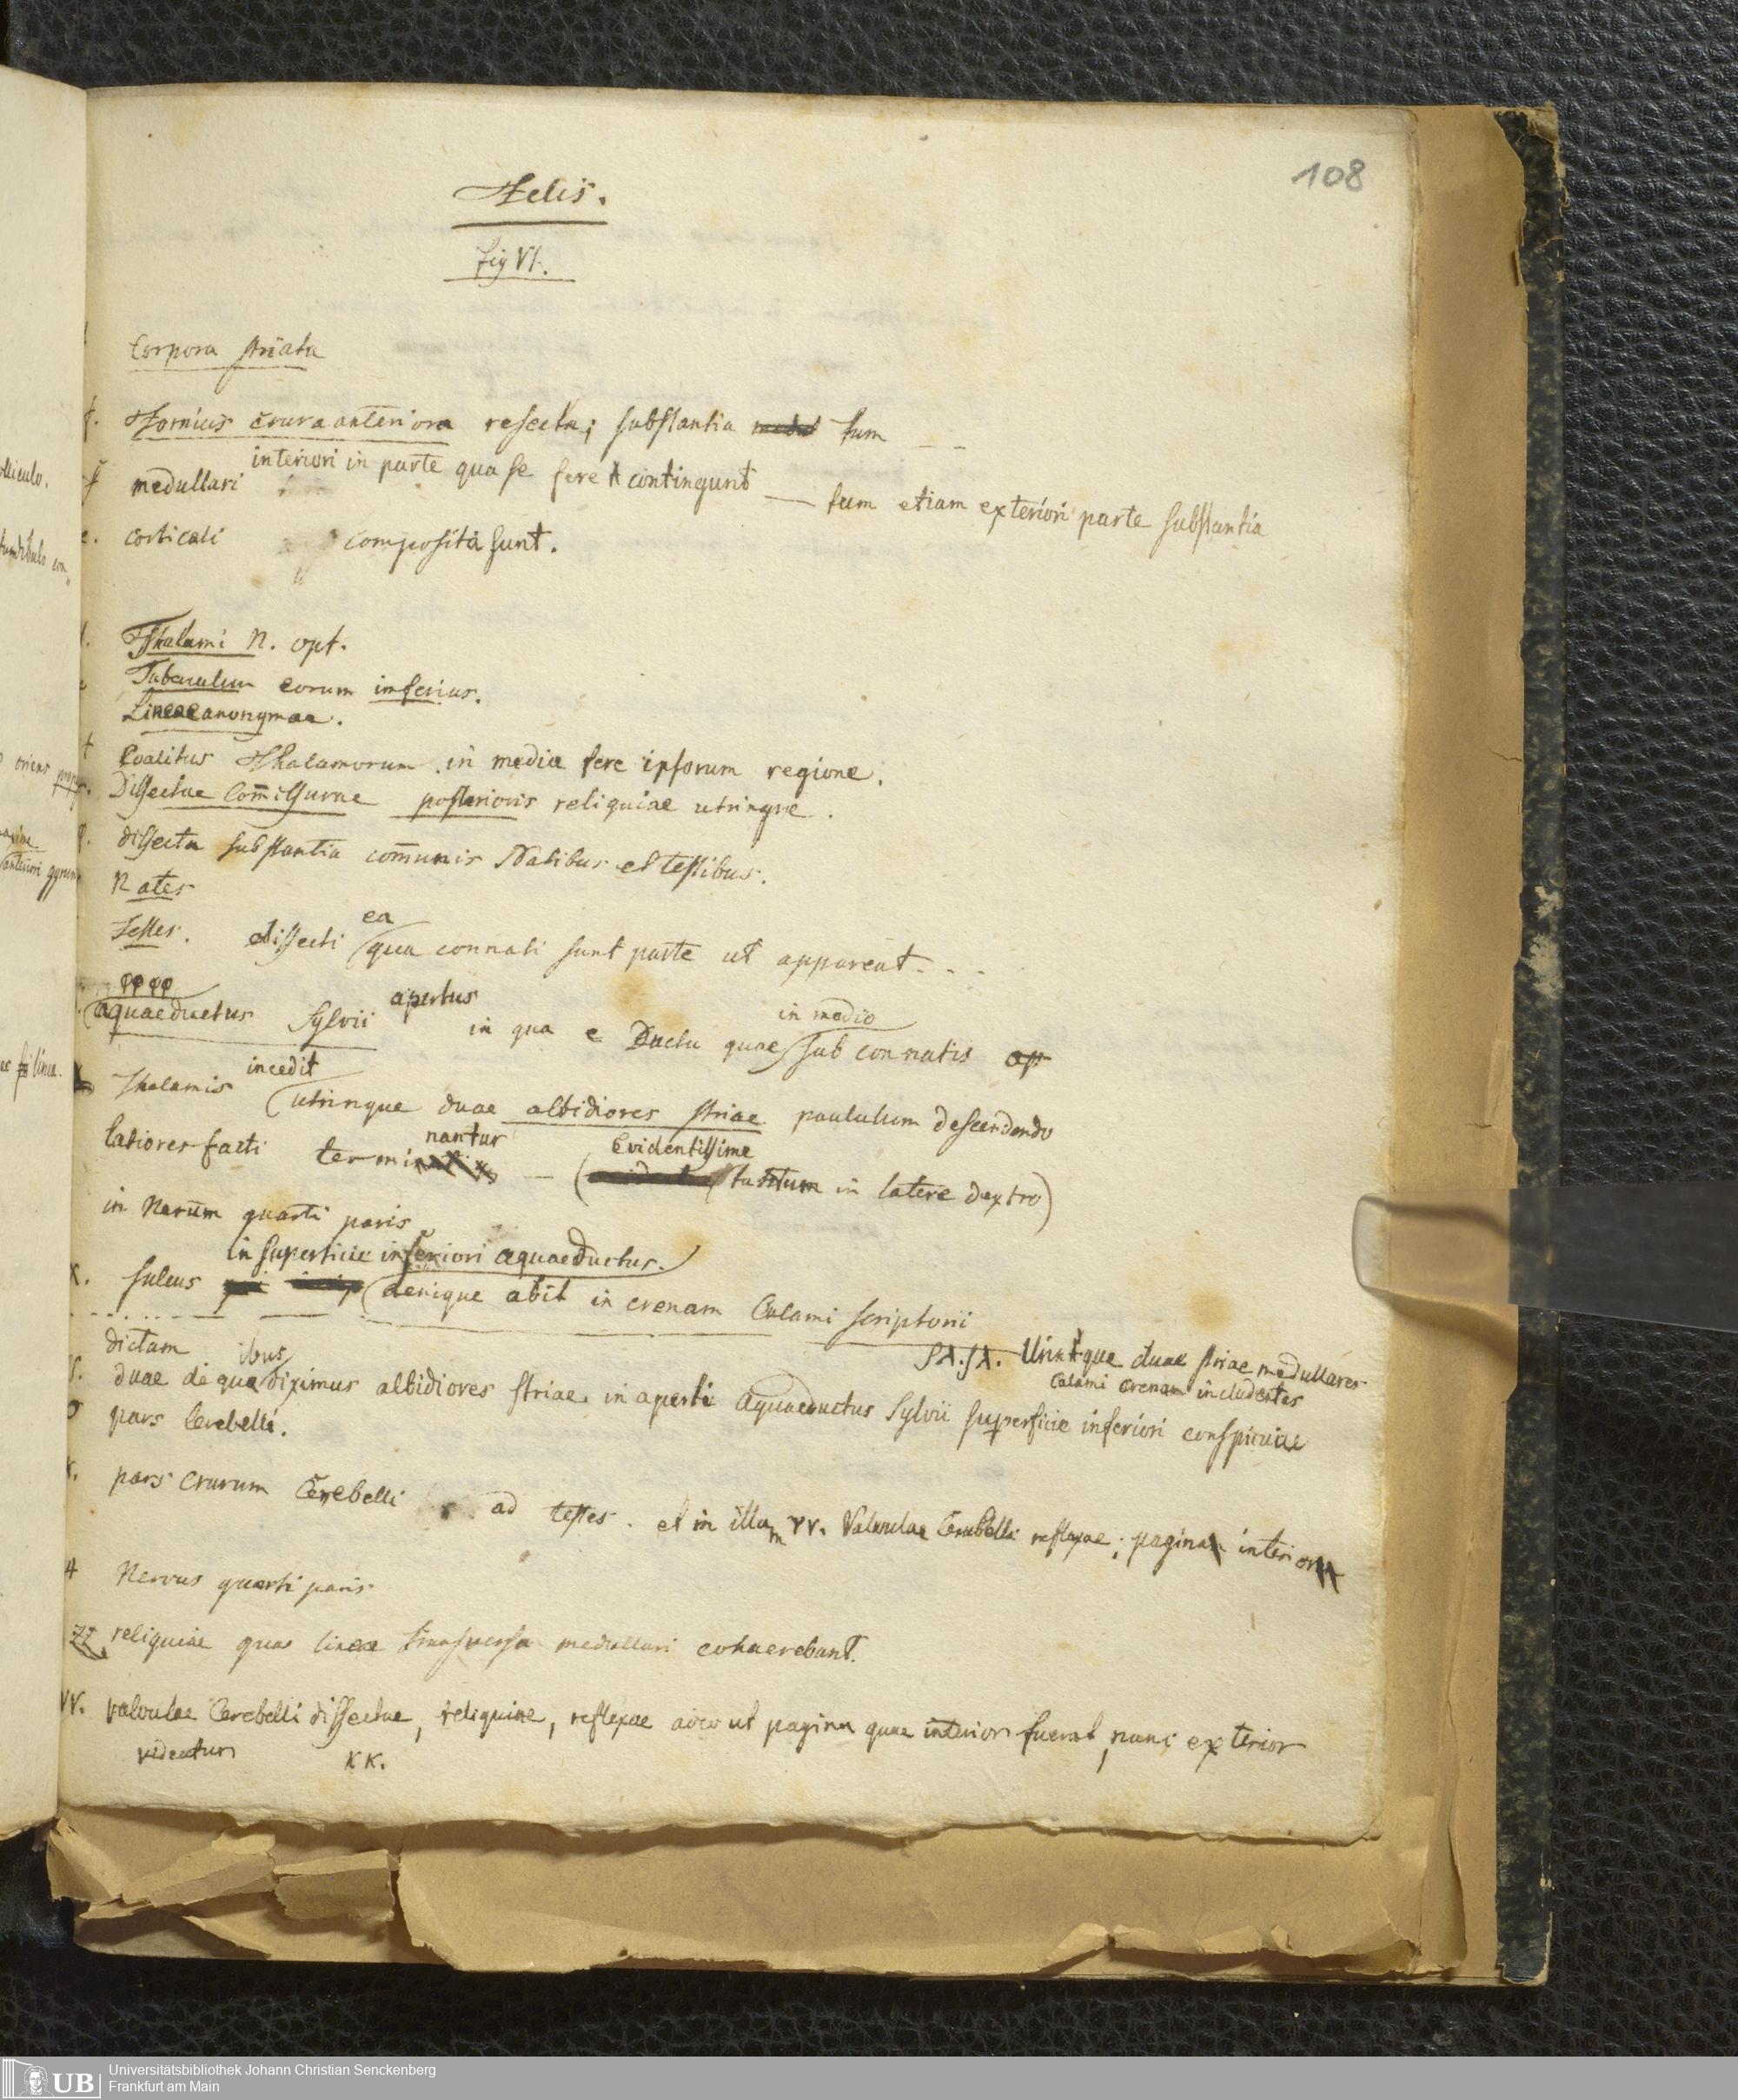 108
Felis.
fig VI.
Corpora striata
f. Fornicis crura anteriora resecta; substantia tum
interiori in parte qua se fere contingunt
medullari — tum etiam exteriori parte substantia
e. corticali composita sunt.
Thalami N. opt.
Tuberculum eorum inferius.
Lineae anonymae.
t Coalitus Thalamorum in media fere ipsorum regione.
Dissectae Com̄issurae posterioris reliquiae utrinque.
φ. dissecta substantia com̄unis Natibus et testibus.
Nates
Testes. dissecti ea qua connati sunt parte ut appareat - - -
φφφφ
aquaeductus Sylvii apertus in qua e Ductu quae in medio sub connatis
Thalamis incedit utrinque duae albidiores striae paululum descendendo
latiores facti terminantur — (Evidentissime tantum in latere dextro)
in Nervum quarti paris
in superficie inferiori aquaeductus.
x. sulcus denique abit in crenam Calami scriptorii
dictam
Utrinque duae striae medullares
Calami crenam includentes
duae de quibus diximus albidiores striae in aperti Aquaeductus Sylvii superficie inferiori conspicuae
σ pars Cerebelli.
pars crurum Cerebelli ad testes. et in illam vv. Valvulae Cerebelli reflexae; pagina interior
Nervus quarti paris
zz reliquiae quae linea transversa medullari cohaerebant.
vv. valvulae Cerebelli dissectae, reliquiae, reflexae adeo ut pagina quae interior fuerat, nunc exterior
videatur KK.
UB
Universitätsbibliothek Johann Christian Senckenberg
Frankfurt am Main